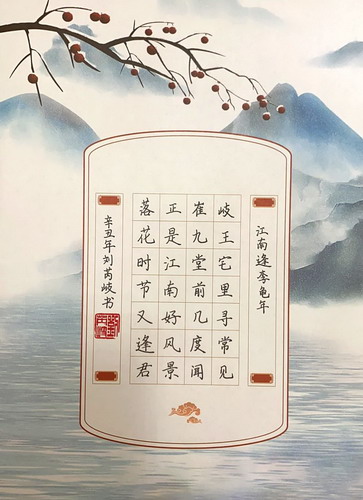 江南逢李龟年
岐王宅里寻常见
崔九堂前几度闻
正是江南好风景
落花时节又逢君
辛丑年刘芮岐书